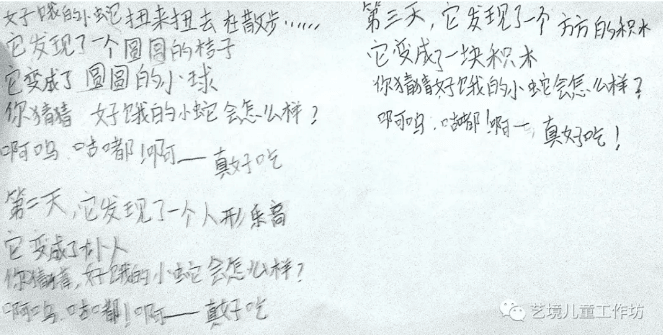 好饿的小蛇扭来扭去在散步……
它发现了一个圆圆的桔子
它变成了圆圆的小球
你猜猜 好饿的小蛇会怎么样？
啊呜.咕嘟!啊——真好吃
第二天,它发现了一个人形乐音
它变成了小人
你猜猜,好饿的小蛇会怎么样？
啊呜.咕嘟!啊——真好吃
第三天,它发现了一个方方的积木
它变成了一块积木
你猜猜好饿的小蛇会怎么样?
啊呜.咕嘟!啊一,真好吃!
艺境儿童工作坊